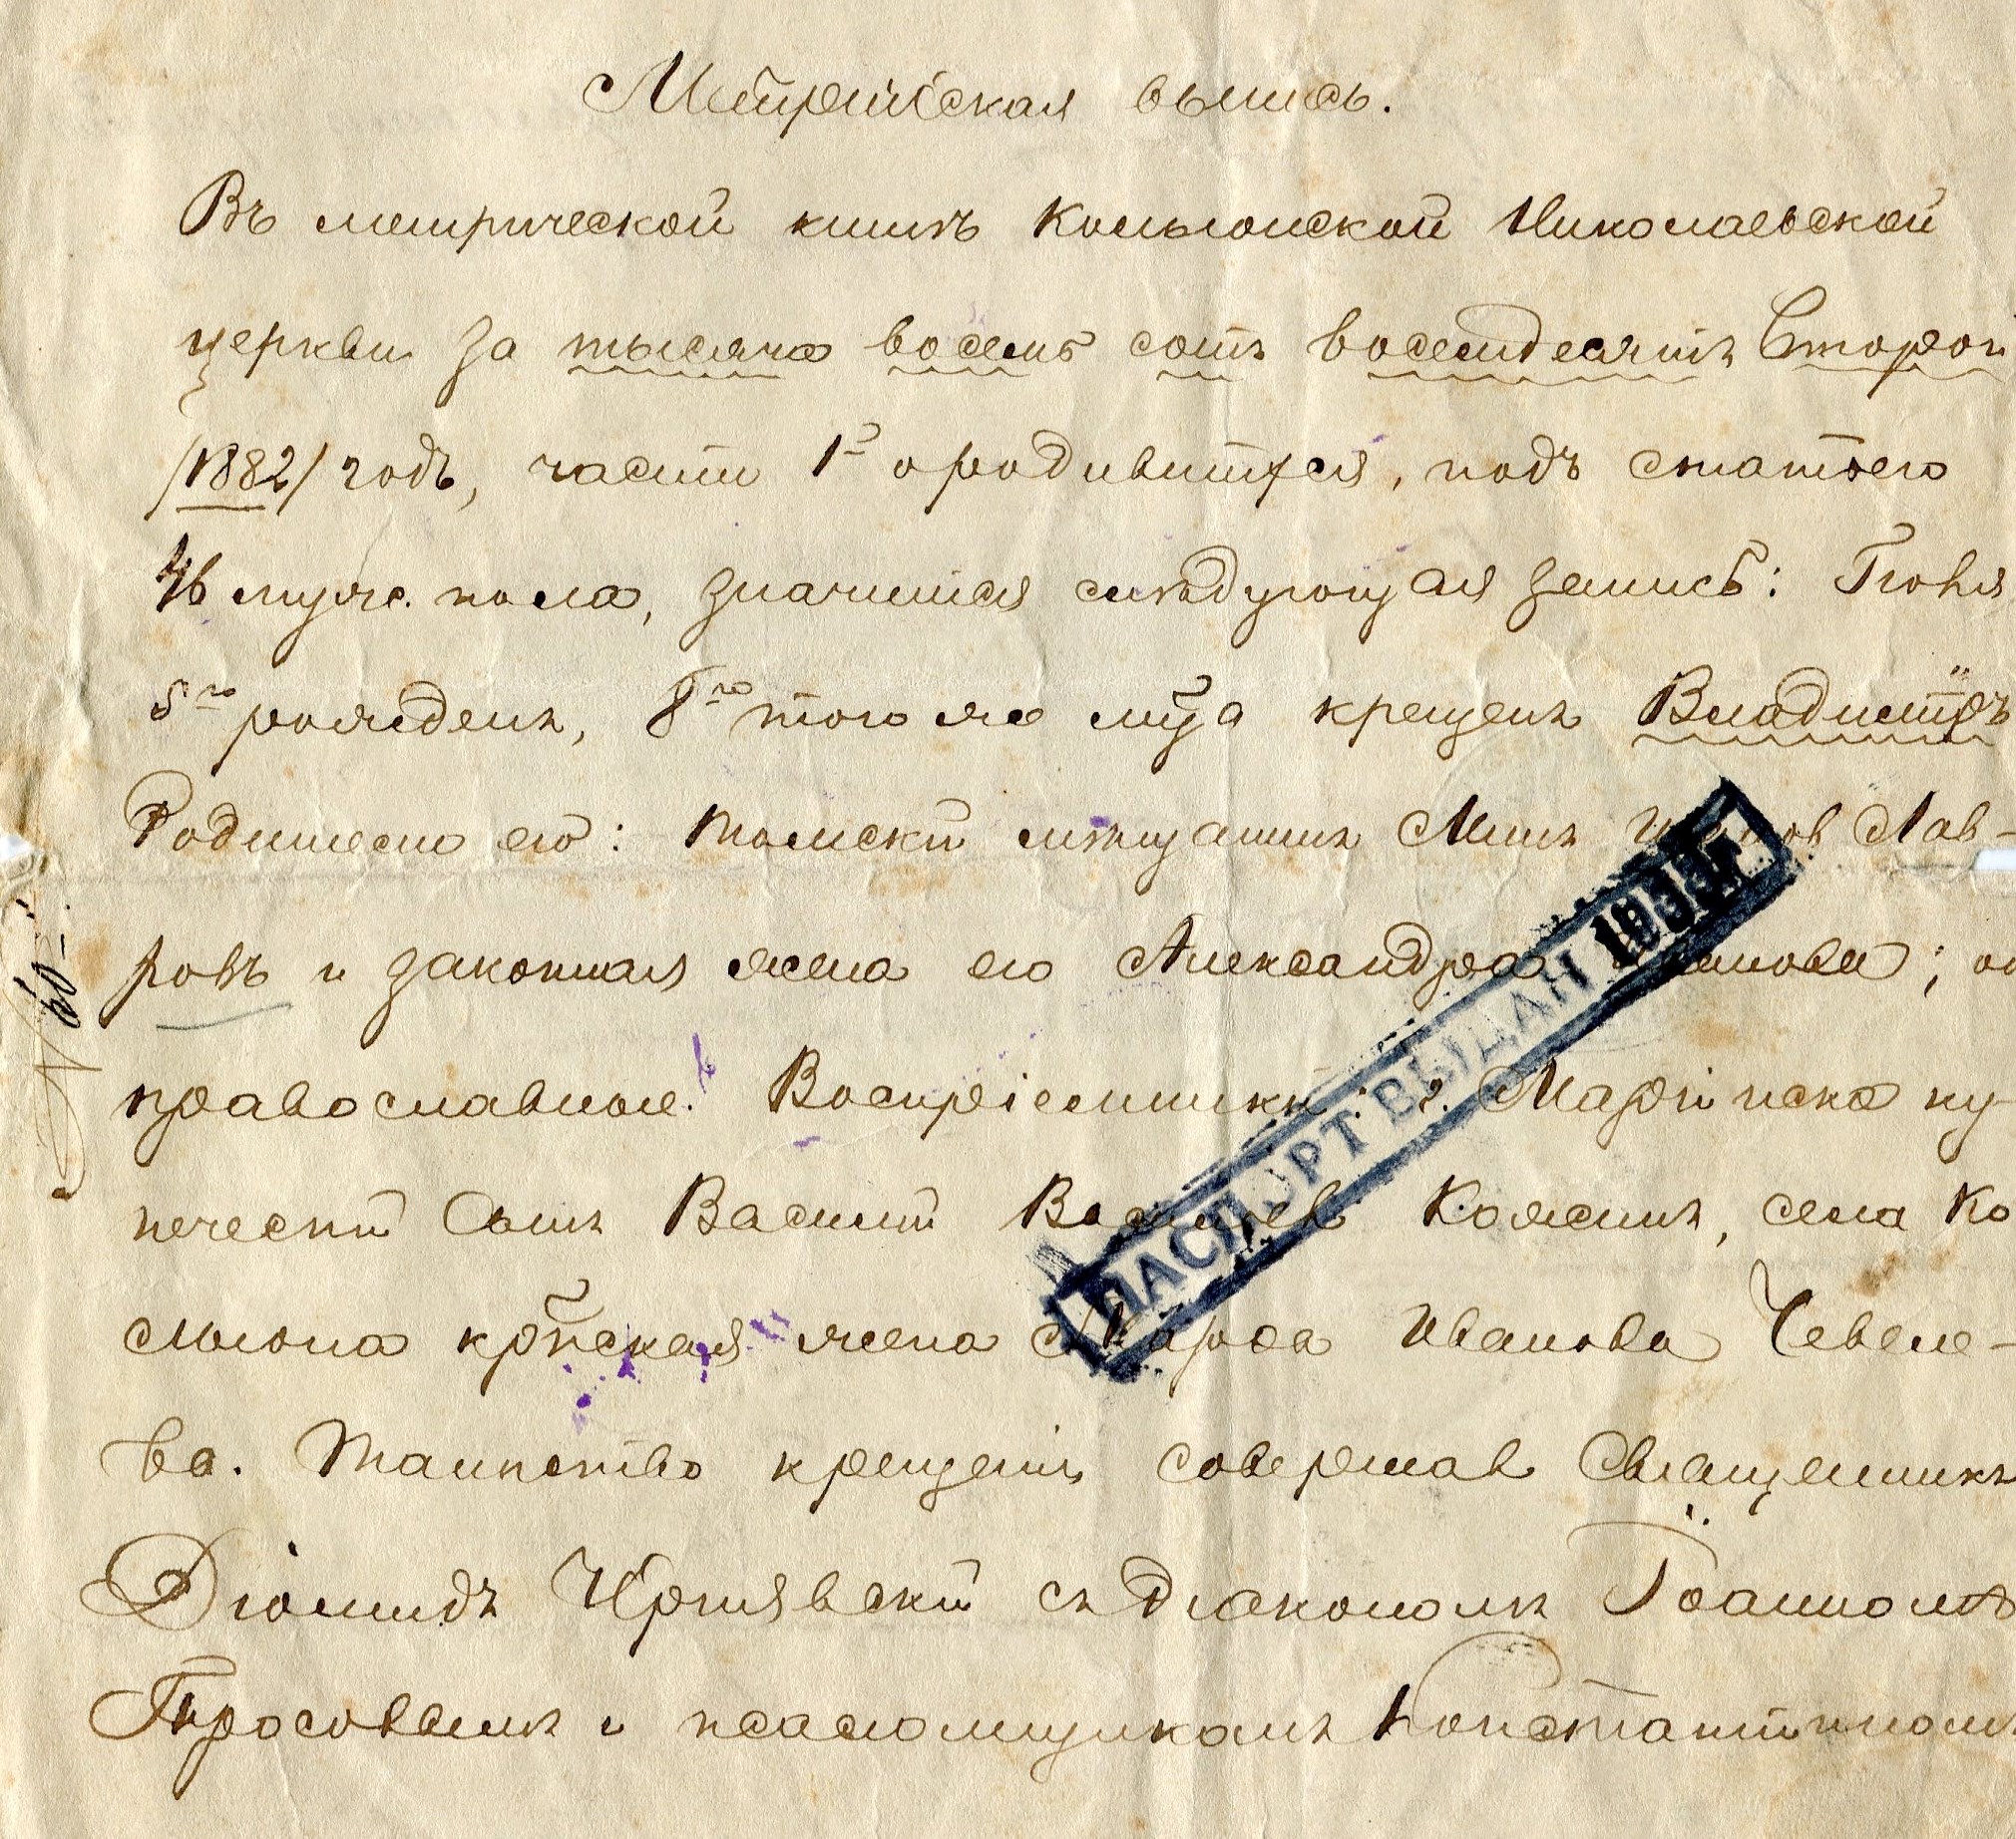 Метрическая выпись.
Въ метрической книгѣ Колыонской Николаевской
церкви за тысяча восемь сотъ восемдесятъ второй
/1882/ годъ, части 1й о родившихся, подъ статьею
46 муж. пола, значится слѣдующая запись: Іюля
5го рожденъ, 8го того же мца крещенъ Владиміръ
Родители его: томскій мѣщанинъ Лав-
ровъ и законная жена его Александра ; оба
православные. Воспріемники: г. Маріинска ку-
печескій сынъ Василій Васильев Кожинъ, села Ко
лыона крпская жена Марѳа Иванова Чевеле-
ва. Таинство крещенія совершав Священникъ
Діомидъ Чернявскій съ Діакономъ Іоанномъ
и псаломщикомъ Константиномъ
ПАСПОРТ ВЫДАН 193
№ 60